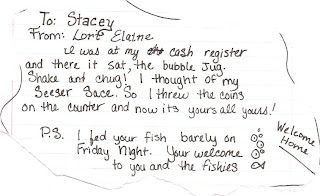 To: Stacey
From: Lori Elaine
I was at my cash register
and there it sat, the bubble jug.
Shake and Chug! I thought of my
Seeser Sace. So I threw the coins
on the counter and now its yours all yours!
P.S. I fed your fish barely on
Friday Night. Your welcome
to you and the fishies
Welcome
Home